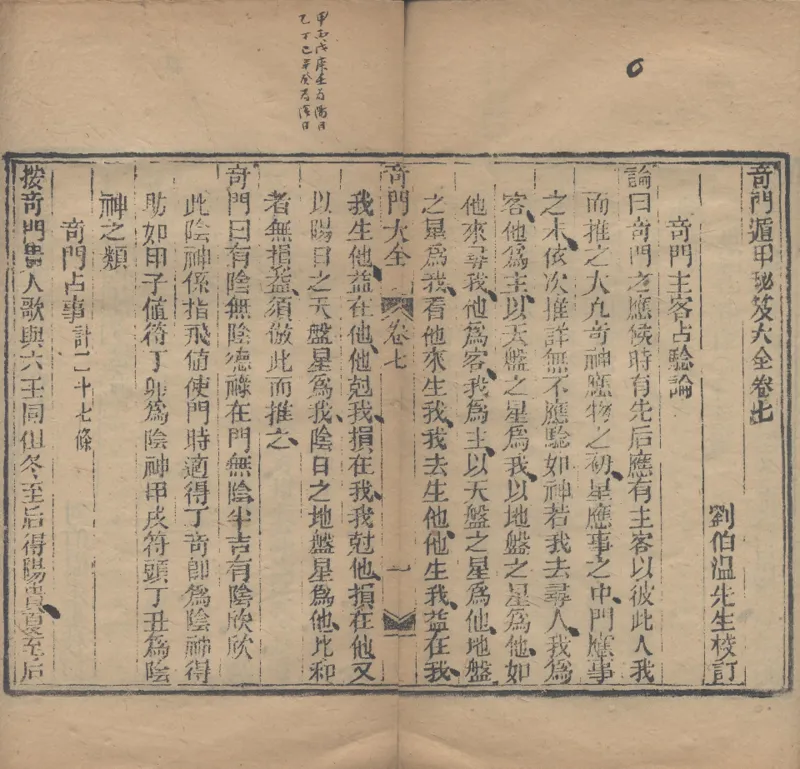 甲丙戊庚壬為陽日
乙丁己辛癸為陰日
奇門遁甲秘笈大全卷七
劉伯温先生校訂
奇門主客占驗論
論曰奇門之應候時有先后應有主客以彼此人我
而推之大凡奇神應物之初星應事之中門應事
之末依次推詳無不應驗如神若我去尋人我為
客他為主以天盤之星為我以地盤之星為他如
他來尋我他為客我為主以天盤之星為他地盤
之星為我看他來生我我去生他他生我益在我
奇門大全 卷七 一
我生他益在他他尅我損在我我尅他損在他又
以陽日之天盤星為我陰日之地盤星為他比和
者無損益須倣此而推之
奇門曰有陰無陰德祿在門無陰半吉有陰欣欣
此陰神係指飛值使門時適得丁奇卽為陰神得
助如甲子值符丁卯為陰神甲戌符頭丁丑為陰
神之類
奇門占事計二十七條
按奇門貴人歌與六壬同但冬至后得陽貴夏至后